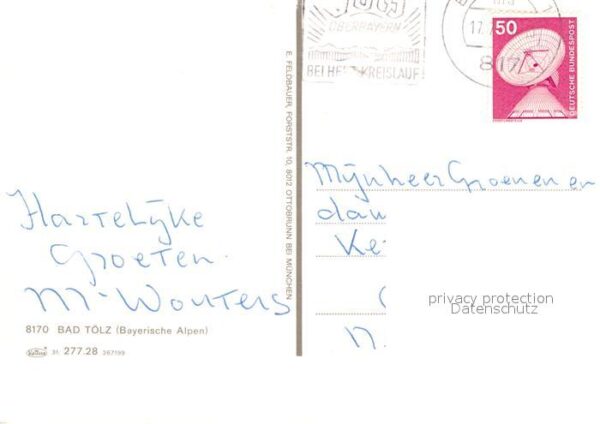 Hartelijke
Groeten.
M. Wouters
8170 BAD TÖLZ (Bayerische Alpen)
31. 277.28 267199
E. FELDBAUER, FORSTSTR. 10, 8012 OTTOBRUNN BEI MÜNCHEN
OBERBAYERN
BEI HERZ KREISLAUF
17.
817
50
DEUTSCHE BUNDESPOST
Mijnheer Groenen en
privacy protection
Datenschutz